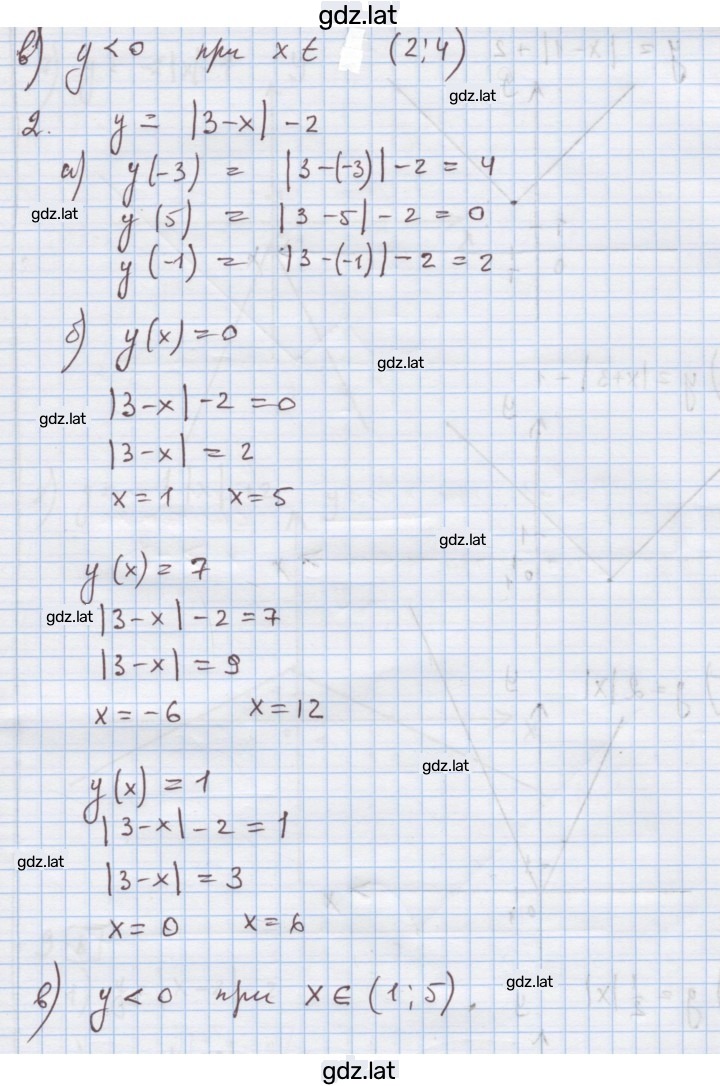 gdz.lat
в) y < 0 при x ∈ (2; 4)
gdz.lat
2. y = |3-x| - 2
а) y(-3) = |3-(-3)| - 2 = 4
gdz.lat
y(5) = |3-5| - 2 = 0
y(-1) = |3-(-1)| - 2 = 2
б) y(x) = 0
gdz.lat
|3-x| - 2 = 0
gdz.lat
|3-x| = 2
x = 1 x = 5
gdz.lat
y(x) = 7
gdz.lat
|3-x| - 2 = 7
|3-x| = 9
x = -6 x = 12
gdz.lat
y(x) = 1
|3-x| - 2 = 1
gdz.lat
|3-x| = 3
x = 0 x = 6
gdz.lat
в) y < 0 при x ∈ (1; 5).
gdz.lat